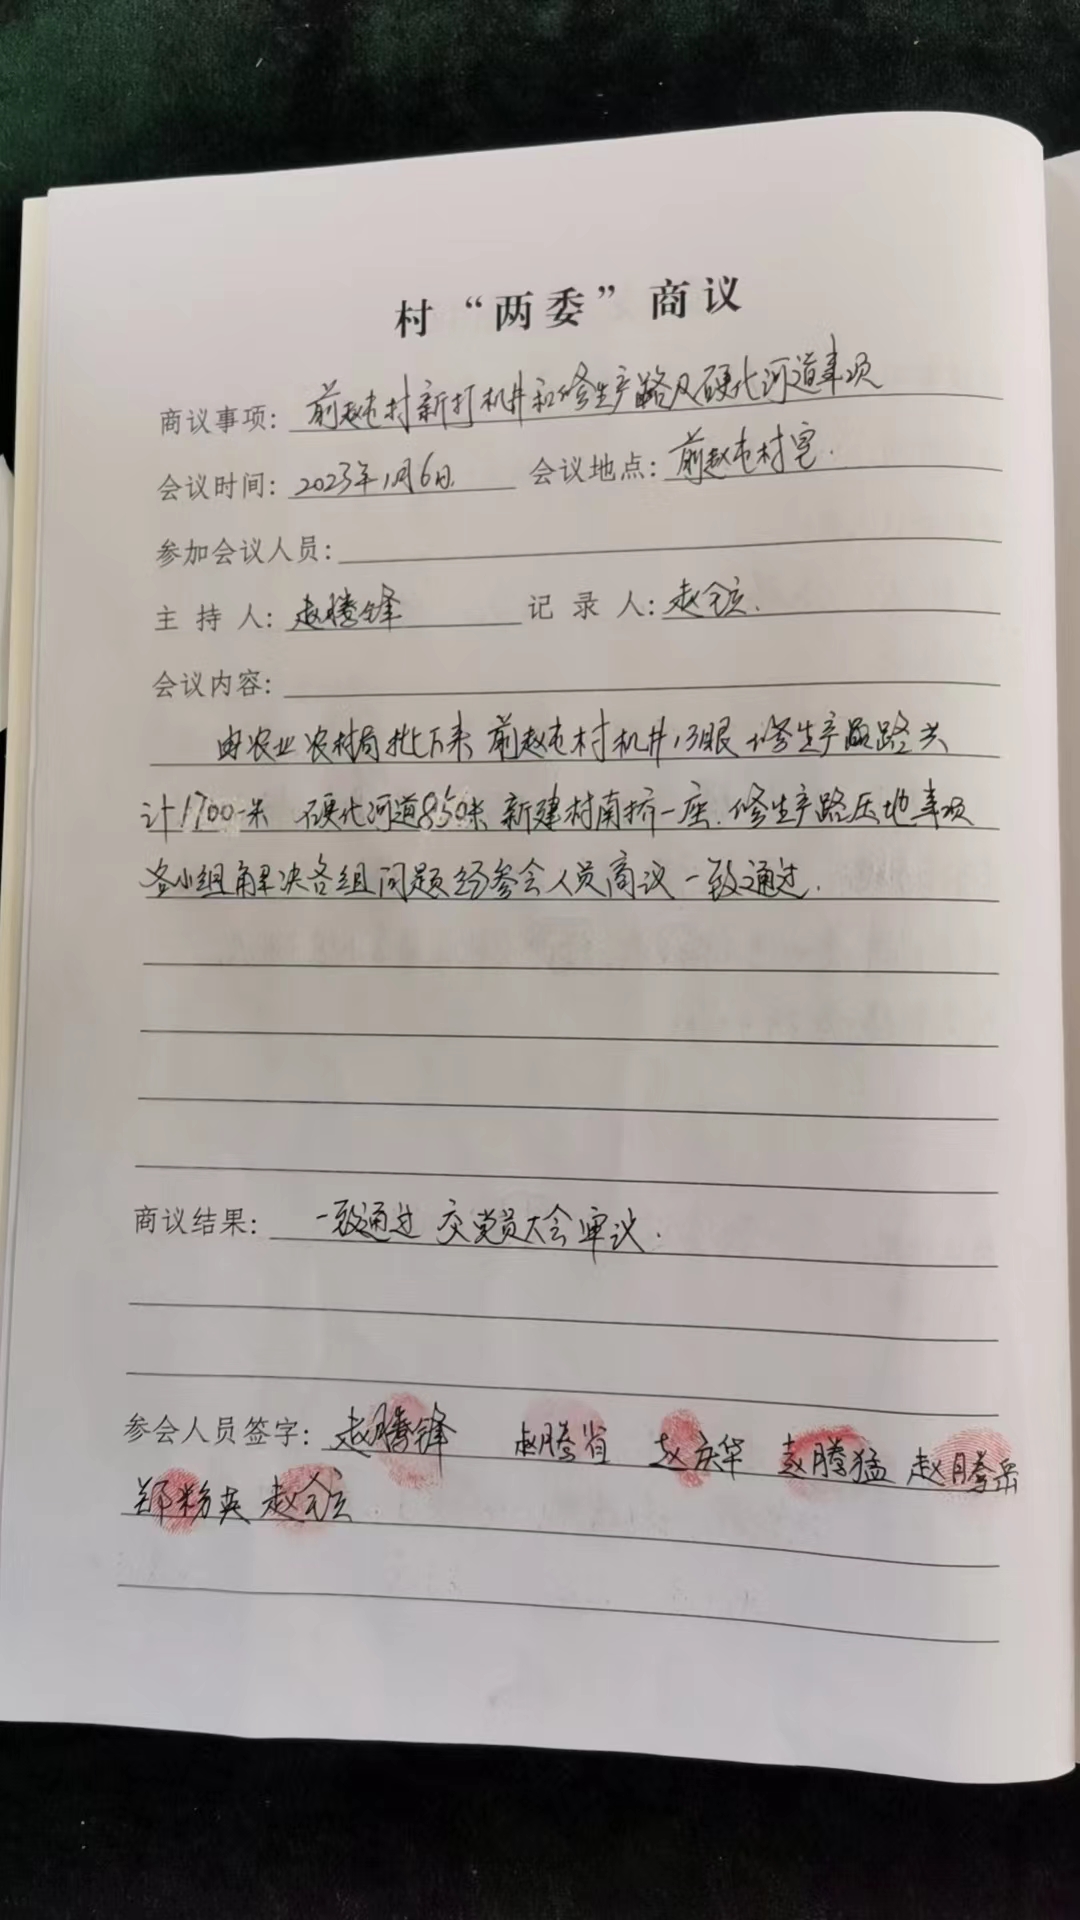 村“两委”商议
商议事项: 前赵屯村新打机井和修生产路及硬化河道事项
会议时间: 2023年1月6日 会议地点: 前赵屯村室.
参加会议人员:
主持人: 赵腾锋 记录人: 赵
会议内容:
由农业农村局批下来 前赵屯村机井13眼 修生产路 共
计1700米 硬化河道850米 新建村南桥一座. 修生产路压地事项
各小组解决各组问题经参会人员商议 一致通过.
商议结果: 一致通过 交党员大会审议.
参会人员签字: 赵腾锋 赵腾省 赵庆华 赵腾猛 赵腾岳
郑粉英 赵